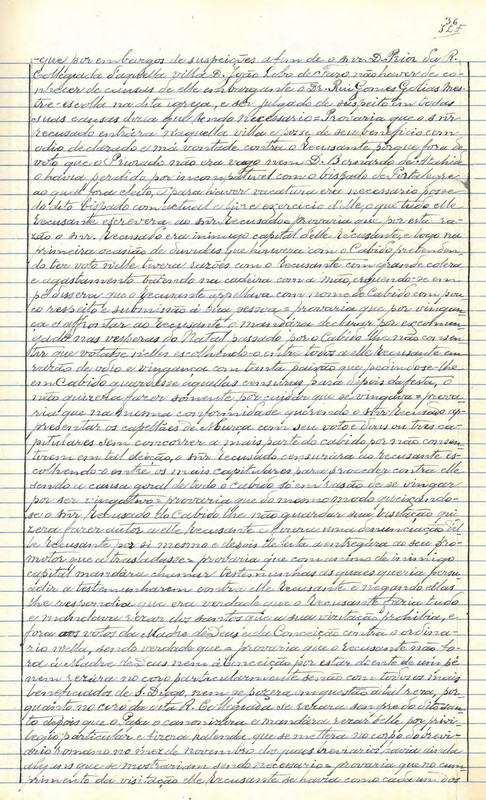 36
-que por embargos de suspeições a fim de o snr. D. Prior da R.
Collegiada daquella villa D. João Lobo de Faro não haver de co-
nhecer de causas de elle embargante o Dr. Rui Gomes Golias mes-
tre-escolla na dita igreja, e ser julgado de suspeito em todas
suas causas dizia que sendo necessario = Provaria que o snr.
recusado entrára naquella villa e posse de seu beneficio com
odio declarado e má vontade contra o Recusante, porque fora de
voto que o Priorado não era vago nem D. Bernardo de
o havia perdido por incompativel com o bispado de Portalegre
ao qual era eleito, e para haver vacatura era necessario posse
do dito bispado com actual e livre exercicio d'elle, o que tudo elle
Recusante escrevera ao snr. Recusado = provaria que por esta ra-
zão o snr. Recusado era inimigo capital d'elle Recusante, e logo na
primeira occasião de duvidas que tivera com o Cabido, pretenden-
do ter voto nelle tivera rezões com o Recusante com grande colera
e agastamento batendo na cadeira com a mão, erguendo-se em
pé dissera que o Recusante appellava com nome do Cabido com pou-
co respeito e submissão á sua pessoa = provaria que por vingan-
ça e affrontar ao Recusante o mandára declarar por excommun-
gado nas vesporas do Natal passado, por o Cabido lhe não consen-
tir que votasse nelle, escolhendo-o entre todos a elle Recusante em
razão de odio e vingança com tanta paixão que pedindo-se-lhe
em Cabido guardasse aquellas censuras para depois da festa, o
não quizera fazer sómente por cuidar que se vingava = prova-
ria que na mesma conformidade querendo o snr. Recusado ap-
presentar os capellães de Murça com seu voto e dois ou tres ca-
pitulares sem concorrer a mais parte do cabido por não consen-
tirem em tal eleição, o snr. Recusado censurára ao Recusante es-
colhendo-o entre os mais capitulares para proceder contra elle
sendo a causa geral de todo o cabido só em rasão de se vingar
por ser vingativo = provaria que do mesmo modo queixando-
se o snr. Recusado do Cabido lhe não guardar sua visitação qui-
zera fazer autor a elle Recusante e fizera uma denunciação del-
le Recusante por si mesmo e depois de feita a entregára ao seu pro-
motor que a trasladasse = provaria que com animo de inimigo
capital mandára chamar testemunhas as quaes queria persu-
adir a testemunharem contra elle Recusante e negando ellas
lhe respondia que era verdade que o Recusante fazia tudo
e mandava rezar dos santos que a sua visitação prohibia, e
fora aos votos da Madre de Deus e da Conceição contra o ordina-
rio nella, sendo verdade que = provaria que o Recusante não fo-
ra á Madre de Deus nem á Conceição por estar doente de um pé
nem rezára no coro particularmente senão com todos os mais
beneficiados de S. Diogo, nem se pozera em questão a tal reza, por-
quanto no coro da dita R. Collegiada se rezara sempre do dito san-
to depois que o Papa o canonizára e mandára rezar delle por privi-
legio particular e fizera patente que se mettera no corpo do brevi-
ario romano no mez de novembro dos quaes breviarios havia ainda
alguns que se mostrariam sendo necessario = provaria que no cum-
primento da visitação elle Recusante se havia como cada um dos